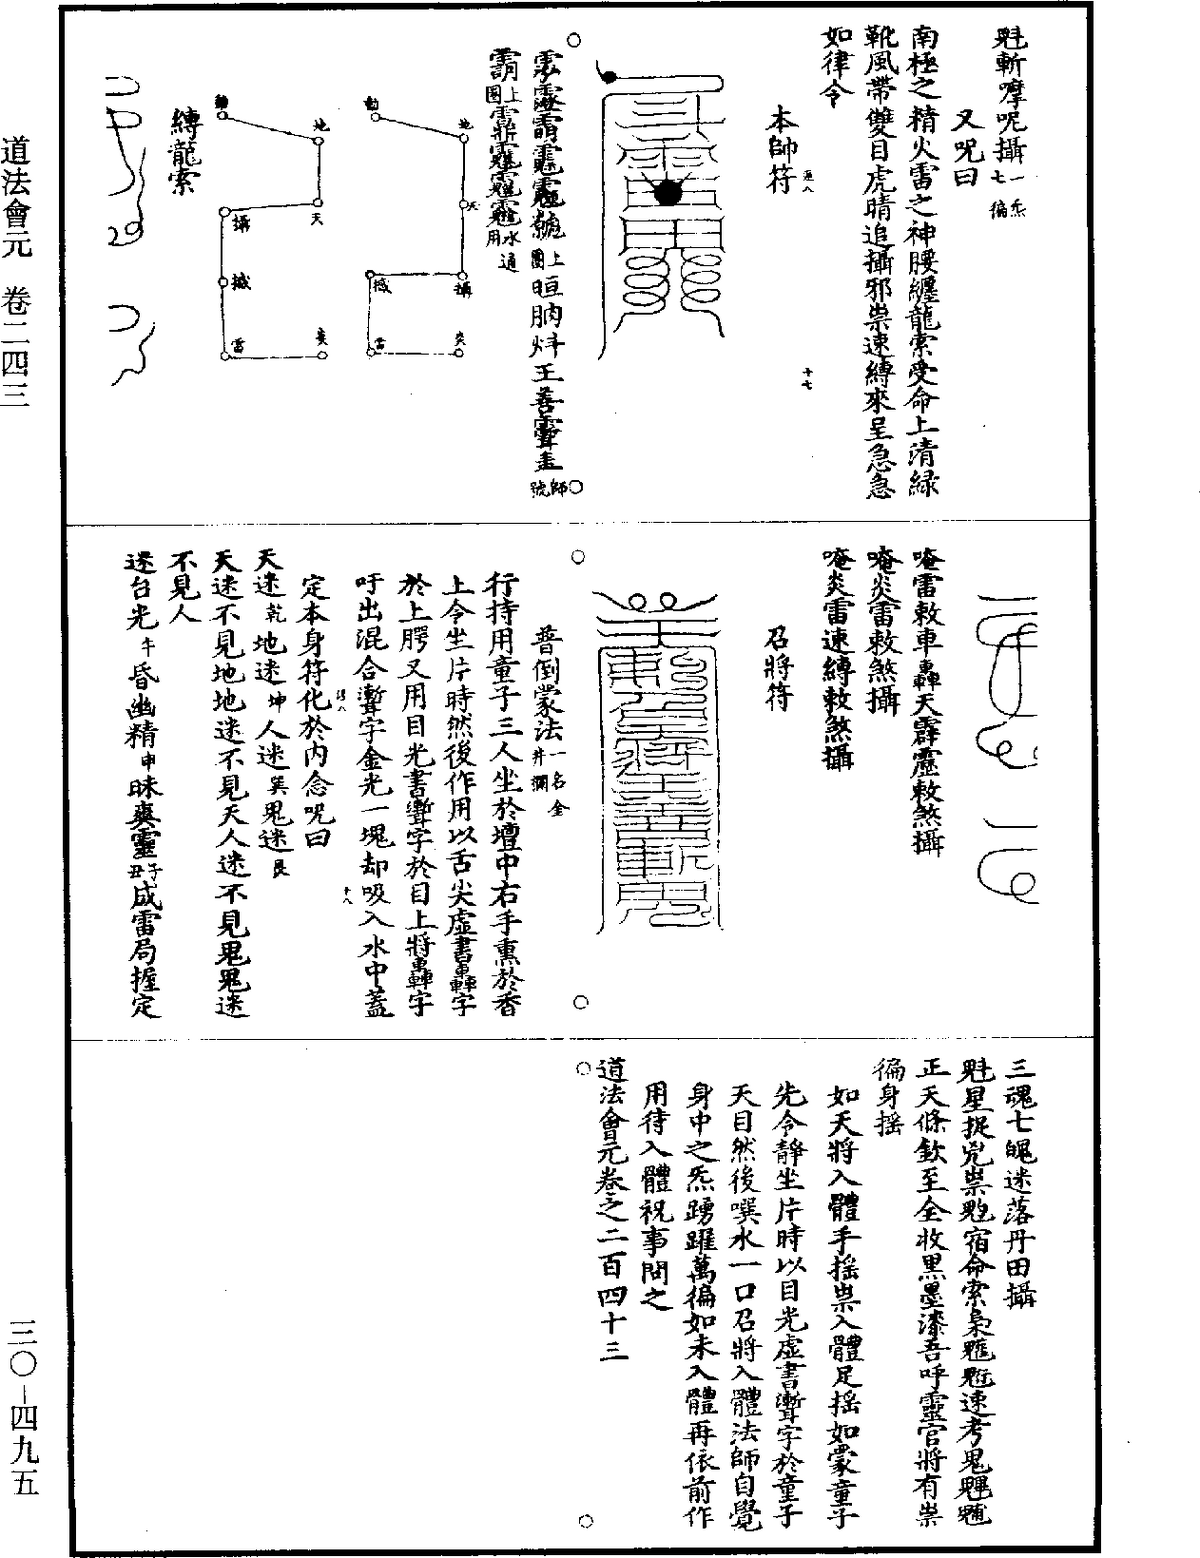 魁斬嚤呢攝一炁七徧
又呪曰
南極之精火雷之神腰纏龍索受命上清緑
靴風帶雙目虎晴追攝邪祟速縛來呈急急
如律令
本師符
十七
上圖晅朒炓王善
師號
上圖
水通用
地
天
攝
撼
雷
炎
地
天
攝
撼
雷
縛龍索
唵雷敕車轟天霹靂敕煞攝
唵炎雷敕煞攝
唵炎雷速縛敕煞攝
召將符
普倒蒙法一名金井欄
行持用童子三人坐於壇中右手熏於香
上令坐片時然後作用以舌尖虛書轟字
於上腭又用目光書字於目上將轟字
吁出混合字金光一塊却吸入水中蓋
定本身符化於内念呪曰
十八
天迷乾地迷坤人迷巽鬼迷艮
天迷不見地地迷不見天人迷不見鬼鬼迷
不見人
迷台光午昏幽精申昧爽靈子丑成雷局握定
三魂七魄迷落丹田攝
魁星捉兇祟宿命索梟速考鬼
正天條欽至全收黑墨漆吾呼靈官將有祟
徧身摇
如天將入體手摇祟入體足摇如蒙童子
先令靜坐片時以目光虛書字於童子
天目然後噀水一口召將入體法師自覺
身中之炁踴躍萬徧如未入體再依前作
用待入體祝事問之
道法會元卷之二百四十三
道法會元　卷二四三
三〇－四九五